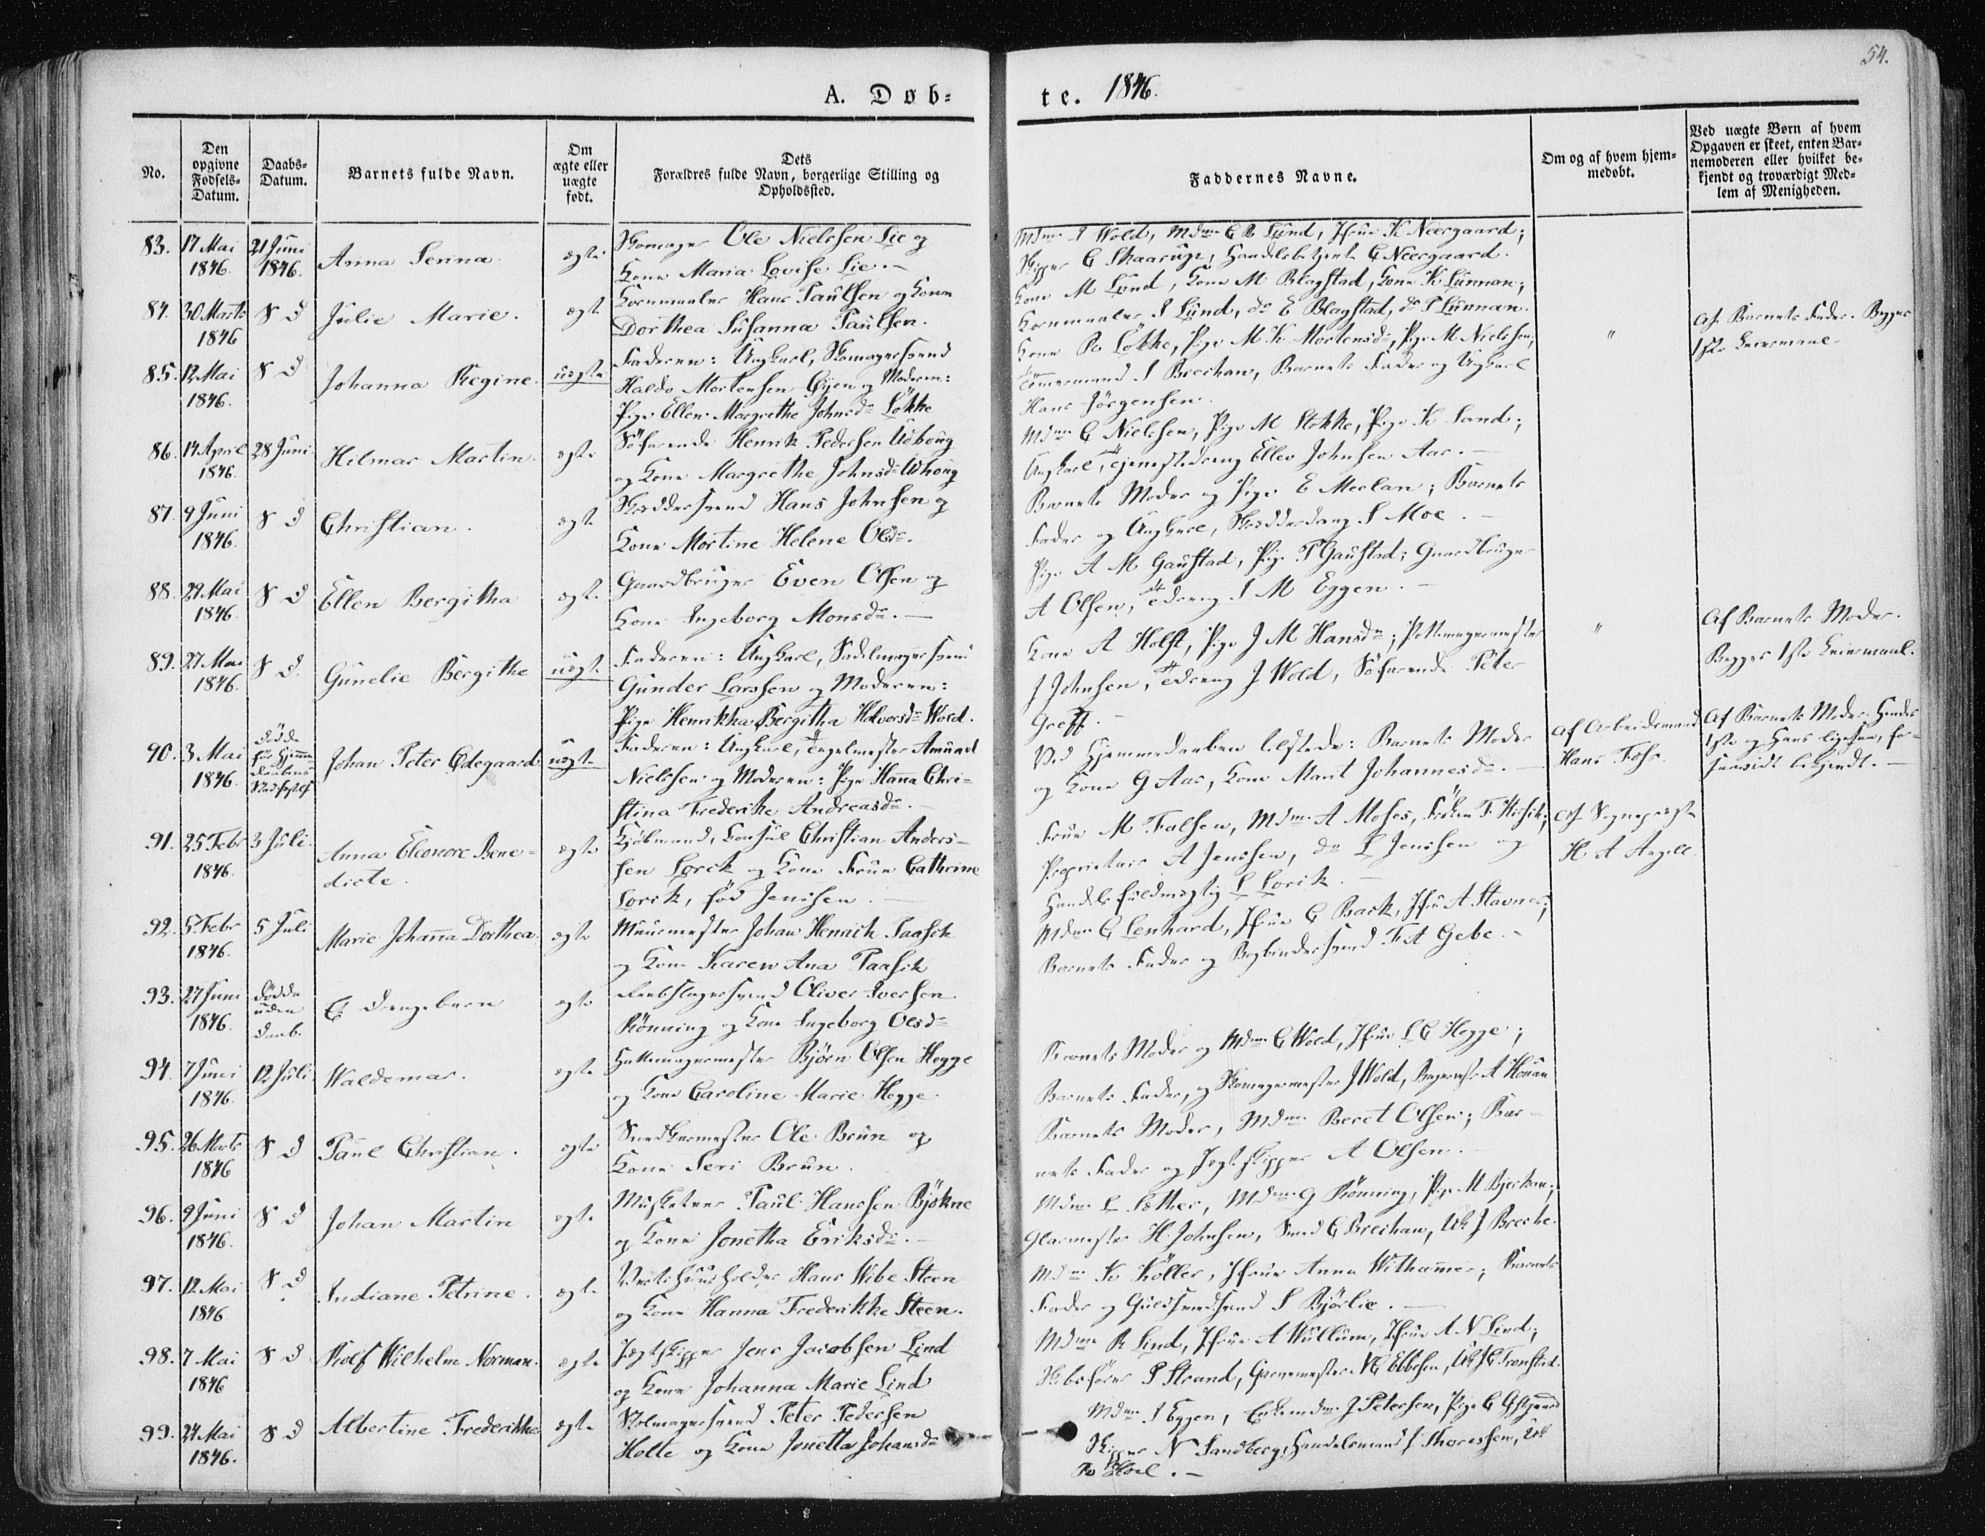 54.
A. Døb-
te. 1846.
No.
Den opgivne Fødsels-Datum.
Daabs-Datum.
Barnets fulde Navn.
Om ægte eller uægte født.
Dets Forældres fulde Navn, borgerlige Stilling og Opholdssted.
Faddernes Navne.
Om og af hvem hjemmedøbt.
Ved uægte Børn af hvem Opgaven er skeet, enten Barnemoderen eller hvilket bekjendt og troværdigt Medlem af Menigheden.
83. 17 Mai 1846. 21 Juni 1846. Anna Serina. ægte
Skomager Ole Nielssen Lie og
Kone Maria Lovise Lie.
Mdm I Wold, Mdm C R Lund, Jfrue K Neergaard;
Skipper C Skaarup, Handelsbetjent C Neergaard.
84. 30 Marts 1846 S D Julie Marie. ægte
Kornmaaler Hans Paulsen og Kone
Dorthea Susanna Paulsen.
Kone M Lund, Kone M Blagstad, Kone K Lunnan;
Kornmaaler I Lund, do E Blagstad, do P Lunnan.
85. 12 Mai 1846. S D Johanna Regine. uægte
Faderen: Ungkarl, Skomagersvend
Haldo Mortensen Gijen og Moderen:
Pige Ellen Margrethe Johnsdr Løkke
Kone R Løkke, Pige M K Mortensdr, Pige M Nielssen,
Tømmermand I Brechan, Barnets Fader og Ungkarl
Hans Jørgensen.
"
Af Barnets Fader. Begges
1ste Leiermaal.
86. 14 April 1846. 28 Juni. Hilmar Martin. ægte
Søfarende Henrik Pedersen Udhoug
og Kone Margrethe Johnsdr Udhoug
Mdm C Nielssen, Pige M Stokke, Pige K Sand;
Ungkarl, Tjenestedreng Ellev Johnsen Aas.
87. 9 Juni 1846. S D Christian. ægte
Skræddersvend Hans Johnsen og
Kone Martine Helene Olsdr.
Barnets Moder og Pige E Meelan; Barnets
Fader og Ungkarl, Skrædderdreng I Moe.
88. 29 Mai 1846. S D Ellen Bergitha ægte
Gaardbruger Even Olsen og
Kone Ingeborg Monsdr.
Pige A M Gaustad, Pige P Gaustad; Gaardbruger
A Olsen, Tdreng I M Eggen.
89. 27 Mai 1846. S D. Gunelie Bergithe uægte
Faderen: Ungkarl, Sadelmagersvend
Gunder Larssen og Moderen:
Pige Henrikka Bergitha Halvorsdr Wold.
Kone A Holst, Pige J M Hansdr; Pottemagermester
J Johnsen, Tdreng J Wold, Søfarende Peter
Greff.
"
Af Barnets Moder.
Begges 1ste Leiermaal.
90. 3 Mai 1846. Døde før Hjemmedaabens Stadfestelse Johan Peter Ødegaard uægte
Faderen: Ungkarl, Teglmester Amund
Nielssen og Moderen: Pige Hanna Christina Frederike Andreasdr.
Ved Hjemmedaaben tilstede: Barnets Moder
og Kone G Aas, Kone Marit Johannesdr.
Af Arbeidsmand
Hans Foss.
Af Barnets Moder. Hendes
1ste og Hans ligesaa, for-
saavidt bekjendt.
91. 25 Febr 1846. 3 Juli. Anna Eleonore Benedicte. ægte
Kjøbmand, Consul Christian Anderssen Lorck og Kone Frue Cathrine
Lorck, fød Jenssen.
Frue M Falsen, Mdm A Moses, Frøken F
Proprietair A Jenssen, do L Jenssen og
Handelsfuldmægtig L Lorck.
Af Sognepræst
H A Angell
92. 5 Febr 1846. 5 Juli Marie Johanna Dorthea. ægte
Muurmester Johan Henrich Paasch
og Kone Karen Ana Paasch
Mdm C Lenhard, Jfrue C Bark, Jfrue A Stavnes;
Barnets Fader og Bogbindersvend F A Gebe.
93. 27 Juni 1846. Fødde uden Daab. Et Drengebarn ægte
Rebslagersvend Oliver Iversen
Rønning og Kone Ingeborg Olsdr
94. 7 Juni 1846. 12 Juli Waldemar. ægte
Hattemagermester Bjørn Olsen Hegge
og Kone Caroline Marie Hegge.
Barnets Moder og Mdm C Wold, Jfrue L C Hegge;
Barnets Fader, og Skomagermester J Wold, Bagermester A Houan
95. 26 Marts 1846 S D Paul Christian. ægte
Snedkermester Ole Brun og
Kone Seri Brun.
Barnets Moder, Mdm Beret Olsen; Bar-
nets Fader og Jægtskipper A Olsen.
96. 9 Juni 1846. S D Johan Martin ægte
Musketeer Paul Hanssen Bjökne
og Kone Jonetha Eriksdr.
Mdm L Sæther, Mdm G Rönning, Pige M Bjerkan;
Glarmester H Johnsen, Smed C Brechan, Uk J Breche.
97. 12 Mai 1846 S D Indiane Petrine. ægte
Vertshuusholder Hans Wibe Steen
og Kone Hanna Frederikke Steen.
Mdm K Köller, Jfrue Anna Withammer; Barnets
Fader og Guldsmedsvend S Bjørlie.
98. 7 Mai 1846 S D Rolf Wilhelm Norman. ægte
Jægtskipper Jens Jacobsen Lind
og Kone Johanna Marie Lind
Mdm R Lind, Jfrue A Wullum, Jfrue A N Lind;
Skibsfører P Strand, Garvermester N C Ebbesen, Uk J C Tronstad.
99. 24 Mai 1846. S D Albertine Frederikke ægte
Hjulmagersvend Peter Pedersen
Holte og Kone Jonetta Johansdr
Mdm I Eggen, Enkemdm J Petersen, Pige C
Skipper N Sandberg, Handelsmand J Thoresen, Uk
P Hoel.